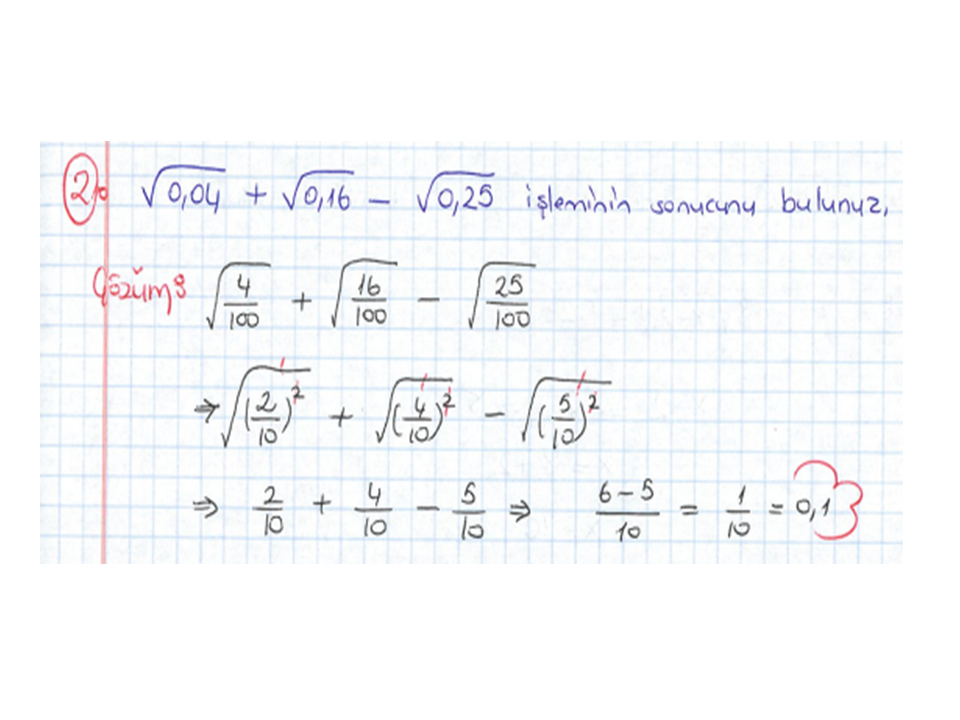 2) √0,04 + √0,16 − √0,25 işleminin sonucunu bulunuz.
Çözüm: √(4/100) + √(16/100) − √(25/100)
⇒ √(2/10)² + √(4/10)² − √(5/10)²
⇒ 2/10 + 4/10 − 5/10 ⇒ 6−5/10 = 1/10 = 0,1